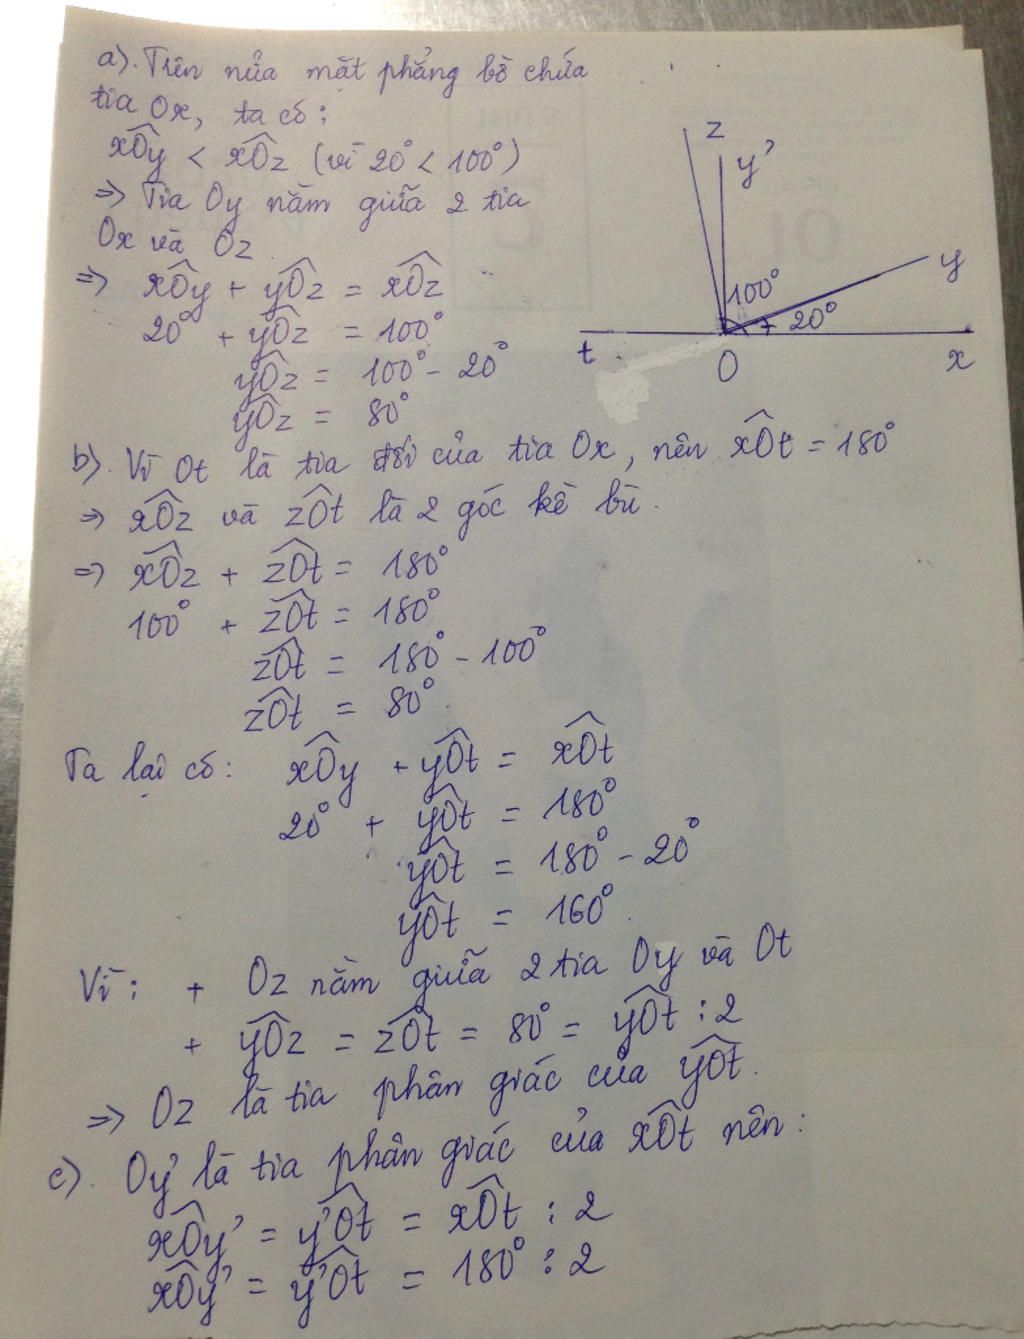 a). Trên nửa mặt phẳng bờ chứa
tia Ox, ta có:
xÔy < xÔz (vì 20° < 100°)
=> Tia Oy nằm giữa 2 tia
Ox và Oz
=> xÔy + yÔz = xÔz
20° + yÔz = 100°
yÔz = 100° - 20°
yÔz = 80°
z
y'
y
100°
20°
t
O
x
b). Vì Ot là tia đối của tia Ox, nên xÔt = 180°
=> xÔz và zÔt là 2 góc kề bù.
=> xÔz + zÔt = 180°
100° + zÔt = 180°
zÔt = 180° - 100°
zÔt = 80°.
Ta lại có: xÔy + yÔt = xÔt
20° + yÔt = 180°
yÔt = 180° - 20°
yÔt = 160°.
Vì: + Oz nằm giữa 2 tia Oy và Ot
+ yÔz = zÔt = 80° = yÔt : 2
=> Oz là tia phân giác của yÔt.
c). Oy' là tia phân giác của xÔt nên:
xÔy' = y'Ôt = xÔt : 2
xÔy' = y'Ôt = 180° : 2